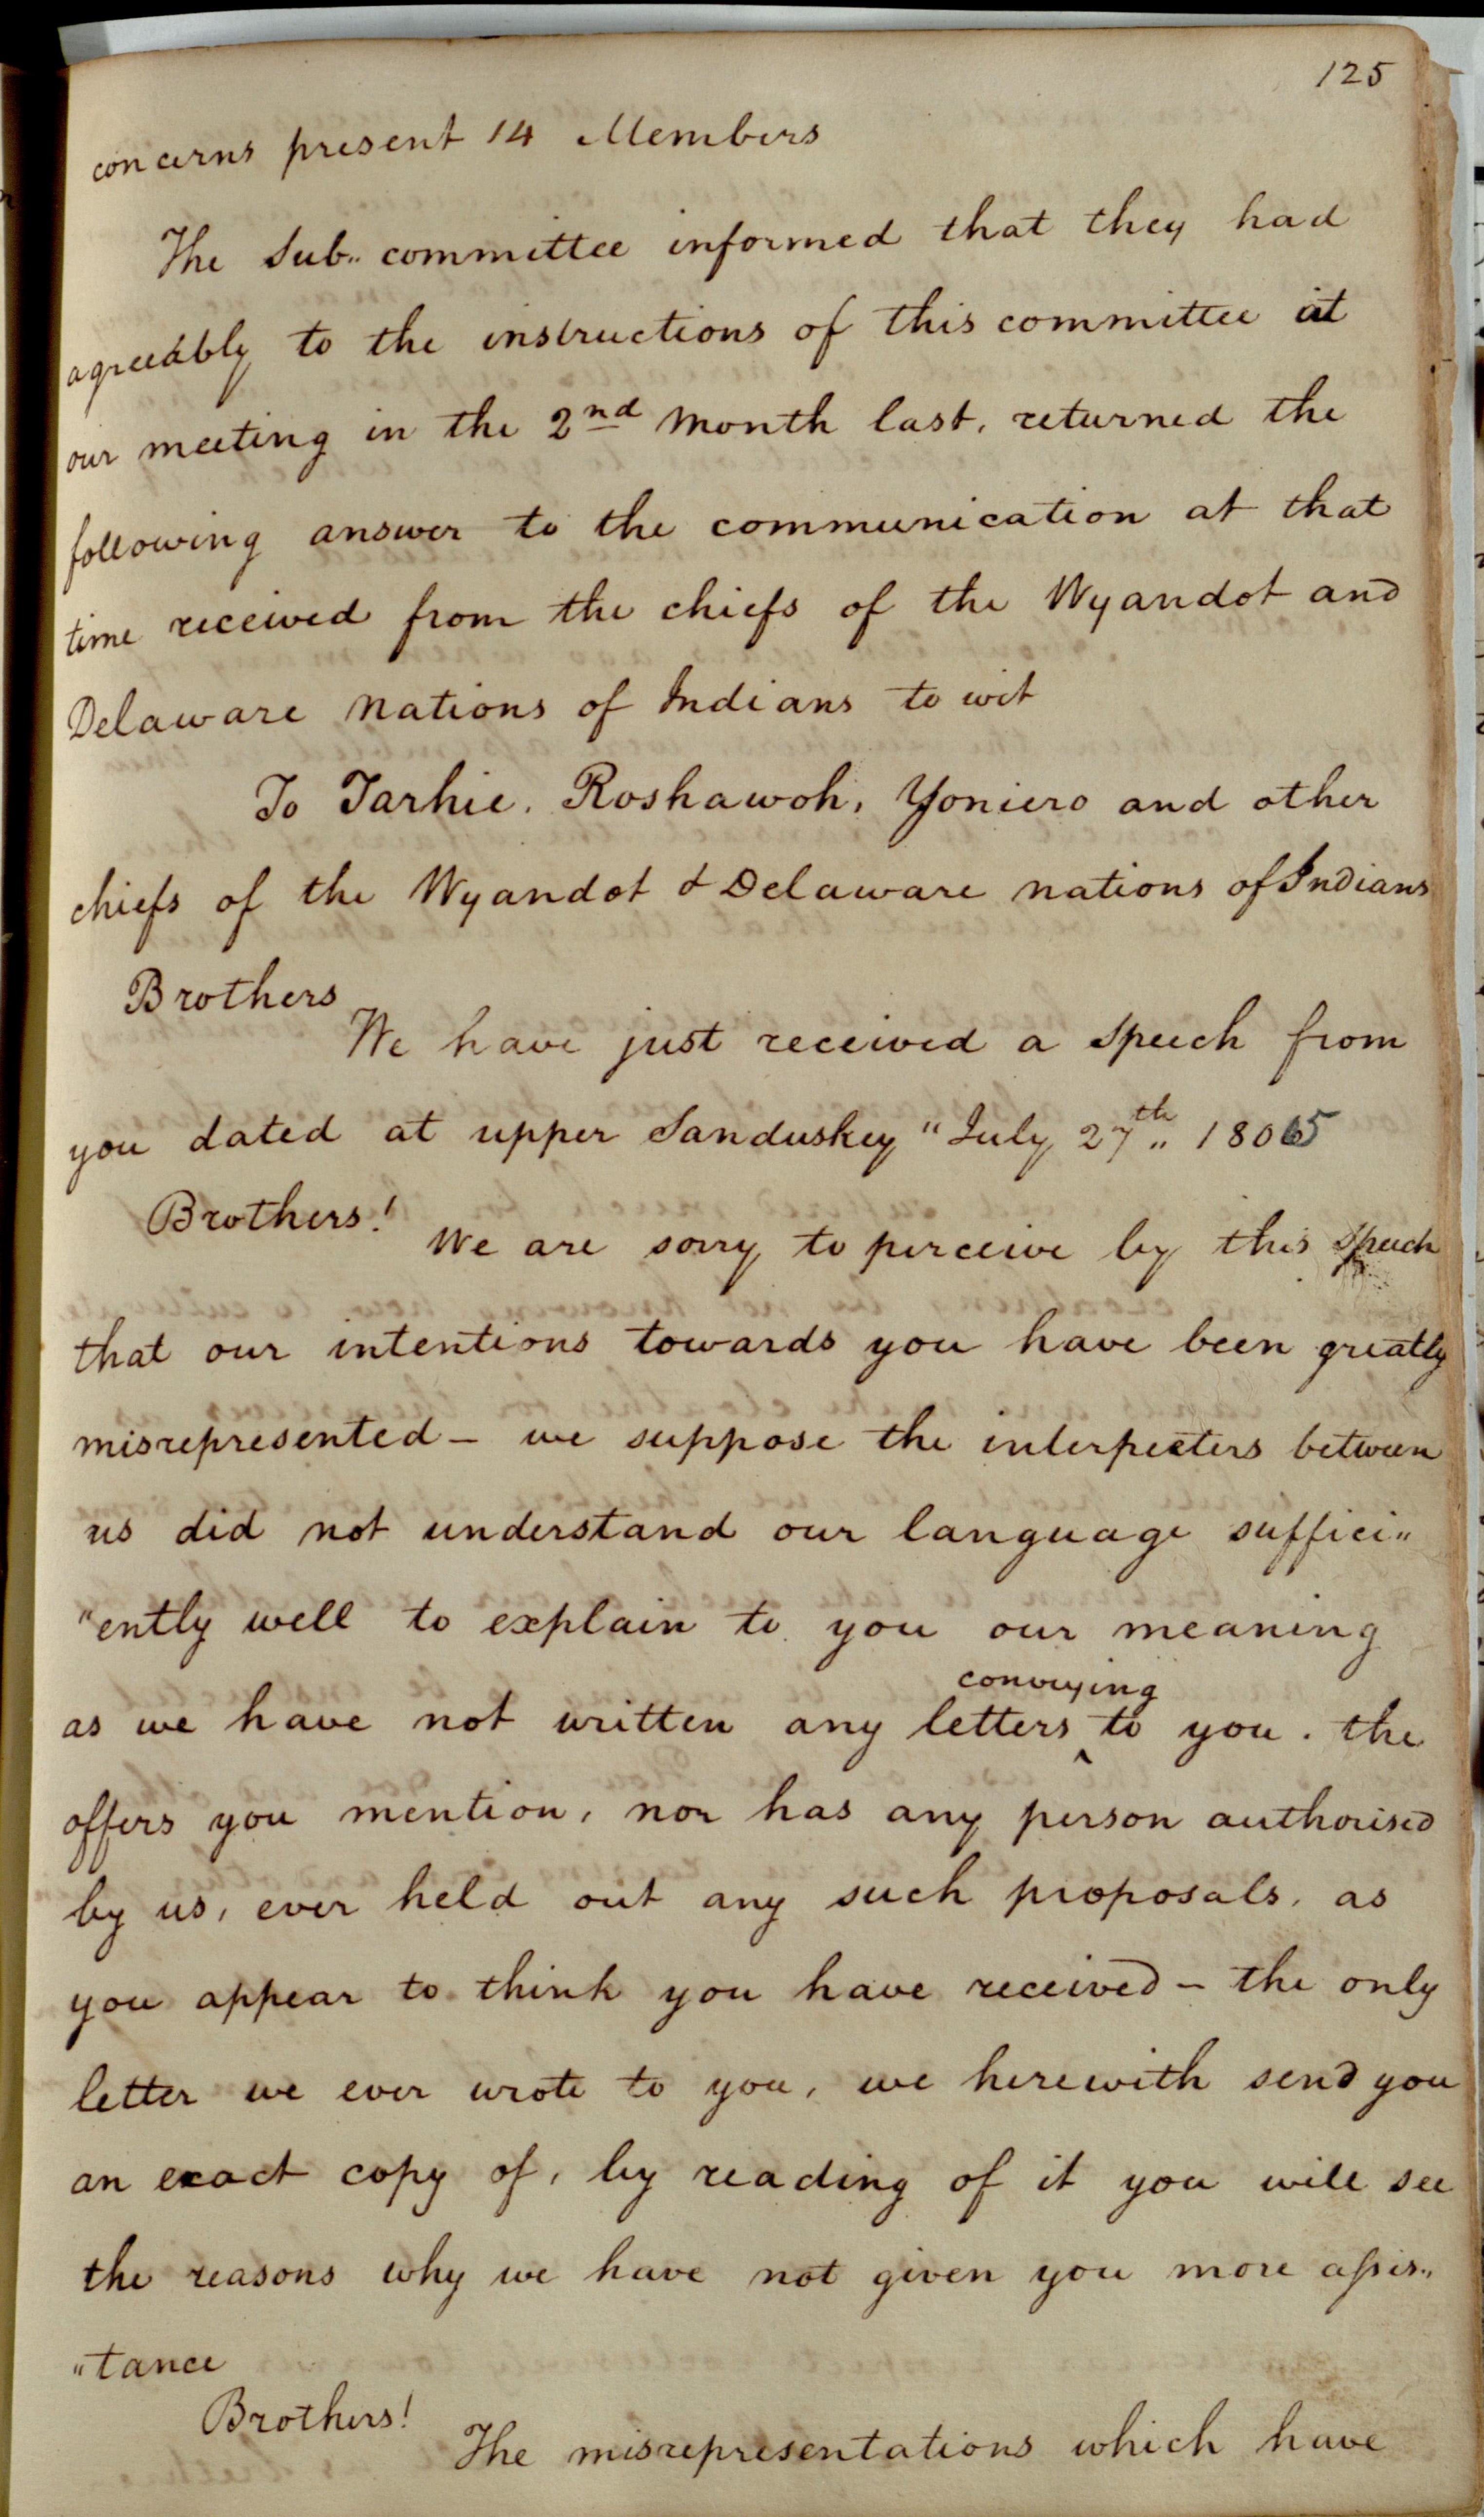 125
concerns present 14 Members
The Sub.. committee informed that they had
agreeably to the instructions of this committee at
our meeting in the 2nd Month last, returned the
following answer to the communication at that
time received from the chiefs of the Wyandot and
Delaware Nations of Indians to wit
To Tarhie, Roshawoh, Yoniero and other
chiefs of the Wyandot & Delaware nations of Indians
Brothers
We have just received a Speech from
you dated at upper Sanduskey "July 27th.. 1805
Brothers!
We are sorry to perceive by this Speech
that our intentions towards you have been greatly
misrepresented – we suppose the interpreters between
us did not understand our language suffici"
"ently well to explain to you our meaning
as we have not written any letters ^ conveying to you. the
offers you mention, nor has any person authorised
by us, ever held out any such proposals, as
you appear to think you have received – the only
letter we ever wrote to you, we herewith send you
an exact copy of, by reading of it you will see
the reasons why we have not given you more assis"
"tance
Brothers!
The misrepresentations which have